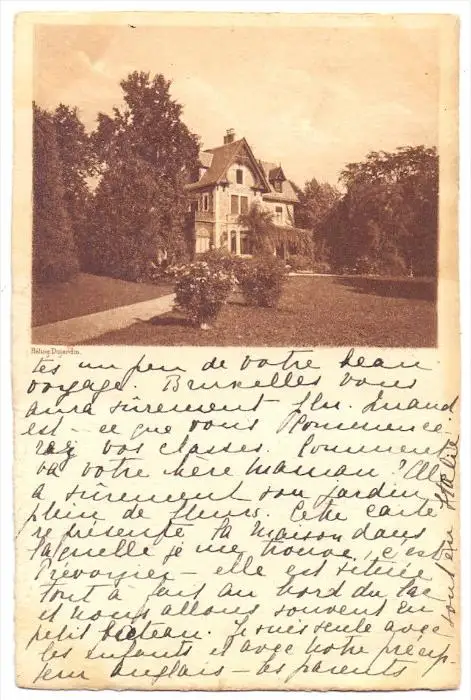 Héliog. Dujardin.
tes un peu de votre beau
voyage. Bruxelles vous
aura sûrement plu. Quand
est-ce que vous recommence-
rez vos classes. Comment
va votre chère Maman? Elle
a sûrement son jardin
plein de fleurs. Cette carte
représente la maison dans
laquelle je me trouve, c'est
Prévorzier - elle est située
tout à fait au bord du lac
et nous allons souvent en
petit bateau. Je suis seule avec
les enfants et avec notre précep-
teur anglais - les parents
sont en Italie